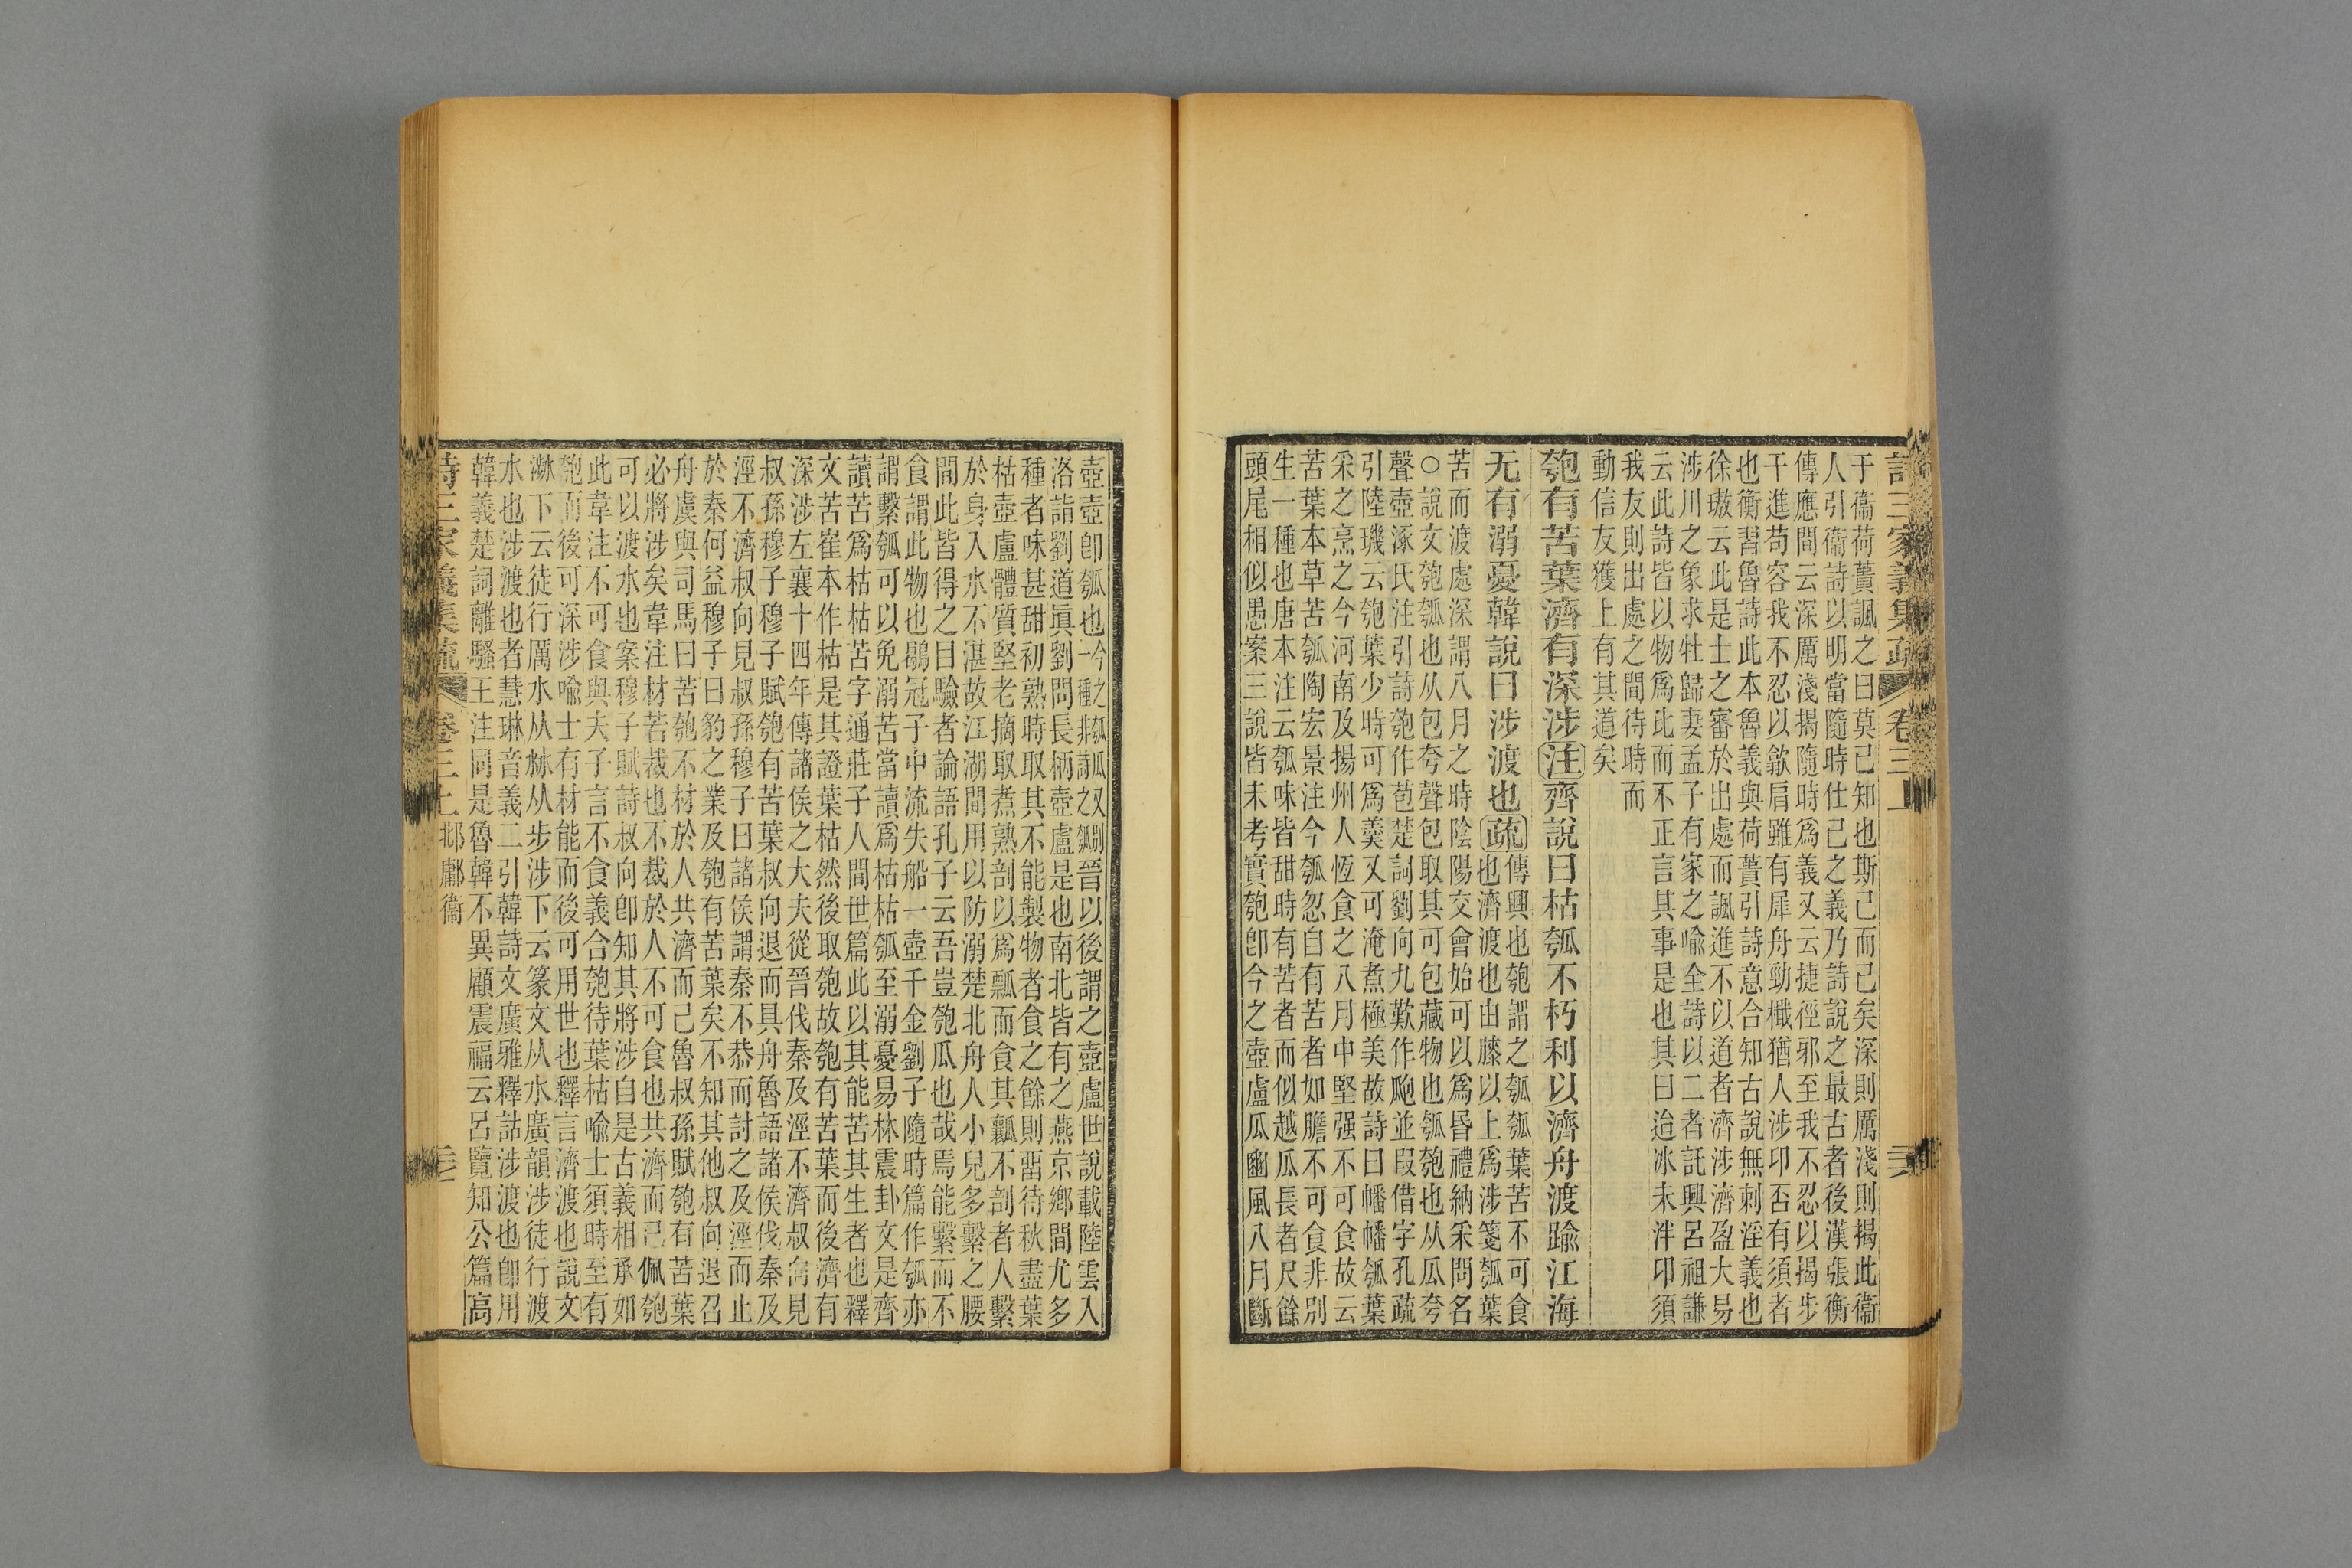 詩三家義集疏 卷三上
于衞荷蕢諷之曰莫己知也斯己而已矣深則厲淺則揭此衞
人引衞詩以明當隨時仕己之義乃詩說之最古者後漢張衡
傳應間云深厲淺揭隨時爲義又云捷徑邪至我不忍以揭步
干進苟容我不忍以歙肩雖有犀舟勁檝猶人涉卬否有須者
也衡習魯詩此本魯義與荷蕢引詩意合知古說無刺淫義也
徐璈云此是士之審於出處而諷進不以道者濟涉濟盈大易
涉川之象求牡歸妻孟子有家之喻全詩以二者託興呂祖謙
云此詩皆以物爲比而不正言其事是也其曰迨冰未泮卬須
我友則出處之間待時而
動信友獲上有其道矣
匏有苦葉濟有深涉注齊說曰枯瓠不朽利以濟舟渡踰江海
无有溺憂韓說曰涉渡也疏
傳興也匏謂之瓠瓠葉苦不可食
也濟渡也由膝以上爲涉箋瓠葉
苦而渡處深謂八月之時陰陽交會始可以爲昏禮納采問名
○說文匏瓠也从包夸聲包取其可包藏物也瓠匏也从瓜夸
聲壺涿氏注引詩匏作苞楚詞劉向九歎作瓟並叚借字孔疏
引陸璣云匏葉少時可爲羹又可淹煮極美故詩曰幡幡瓠葉
采之烹之今河南及揚州人恆食之八月中堅强不可食故云
苦葉本草苦瓠陶宏景注今瓠忽自有苦者如膽不可食非別
生一種也唐本注云瓠味皆甜時有苦者而似越瓜長者尺餘
頭尾相似愚案三說皆未考實匏卽今之壺盧瓜豳風八月斷
壺壺卽瓠也今之瓠瓜又別一種非詩之瓠晉以後謂之壺盧世說載陸雲入
洛詣劉道眞劉問長柄壺盧是也南北皆有之燕京鄉間尤多
種者味甚甜初熟時取其不能製物者食之餘則畱待秋盡葉
枯壺盧體質堅老摘取煮熟剖以爲瓢而食其瓤不剖者人繫
於身入水不湛故江湖間用以防溺楚北舟人小兒多繫之腰
間此皆得之目驗者論語孔子云吾豈匏瓜也哉焉能繫而不
食謂此物也鶡冠子中流失船一壺千金劉子隨時篇作瓠亦
謂繫瓠可以免溺苦當讀爲枯枯瓠至溺憂易林震卦文是齊
讀苦爲枯枯苦字通莊子人間世篇此以其能苦其生者也釋
文苦崔本作枯是其證葉枯然後取匏故匏有苦葉而後濟有
深涉左襄十四年傳諸侯之大夫從晉伐秦及涇不濟叔向見
叔孫穆子穆子賦匏有苦葉叔向退而具舟魯語諸侯伐秦及
涇不濟叔向見叔孫穆子曰諸侯謂秦不恭而討之及涇而止
於秦何益穆子曰豹之業及匏有苦葉矣不知其他叔向退召
舟虞與司馬曰苦匏不材於人共濟而已魯叔孫賦匏有苦葉
必將涉矣韋注材若裁也不裁於人不可食也共濟而已佩匏
可以渡水也案穆子賦詩叔向卽知其將涉自是古義相承如
此韋注不可食與夫子言不食義合匏待葉枯喻士須時至有
匏而後可深涉喻士有材能而後可用世也釋言濟渡也說文
㴇下云徒行厲水从沝从步涉下云篆文从水廣韻涉徒行渡
水也涉渡也者慧琳音義二引韓詩文廣雅釋詁涉渡也卽用
韓義楚詞離騷王注同是魯韓不異顧震福云呂覽知公篇高
詩三家義集疏 卷三上 邶鄘衞